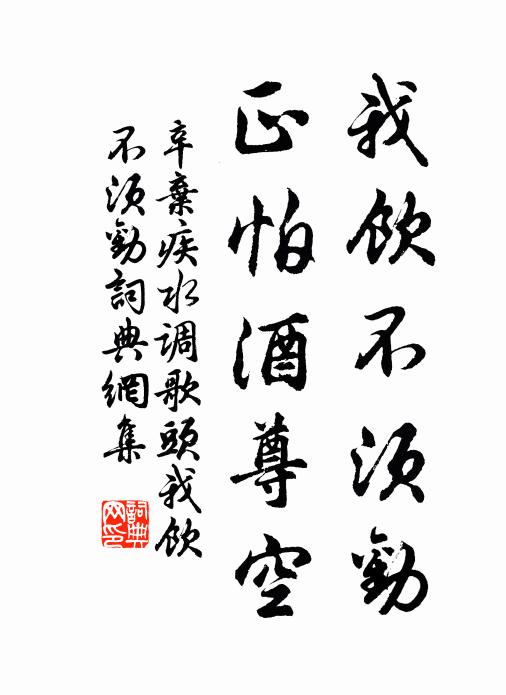 我飲不須勸
正怕酒尊空
辛棄疾水调歌頭我飲
不須勸詞典網集
詞典
网印